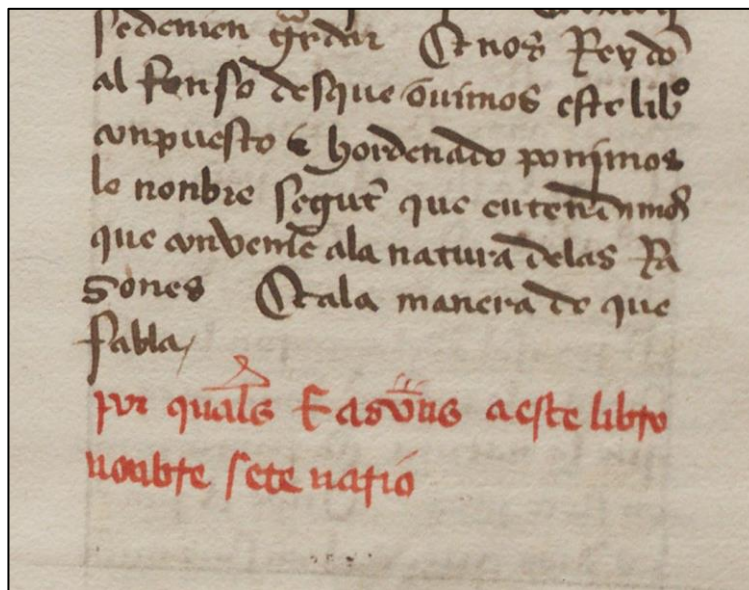 se deuien grdar Et nos Rey do
al fonso desque ouimos este libo
conpuesto e hordenado ponimos
le nonbre segut que entendimos
que conuenie ala natura delas Ra
zones Et ala manera de que
fabla
por quals Razons a este libro
nonbre setenario